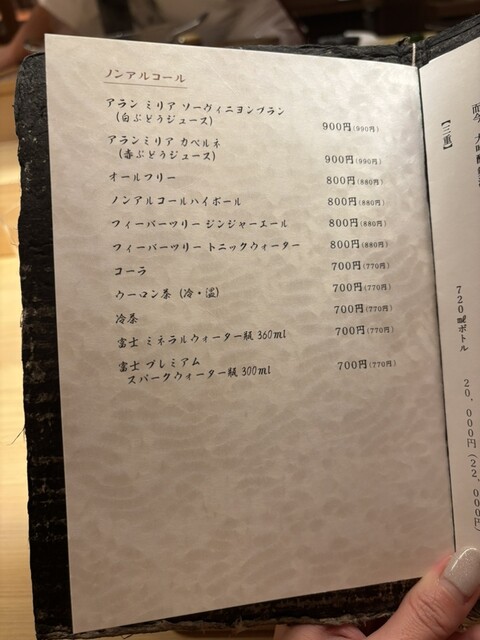 ノンアルコール
アラン ミリア ソーヴィニヨンブラン
(白ぶどうジュース) 900円(990円)
アランミリア カベルネ
(赤ぶどうジュース) 900円(990円)
オールフリー 800円(880円)
ノンアルコールハイボール 800円(880円)
フィーバーツリー ジンジャーエール 800円(880円)
フィーバーツリー トニックウォーター 800円(880円)
コーラ 700円(770円)
ウーロン茶 (冷・温) 700円(770円)
冷茶 700円(770円)
富士 ミネラルウォーター瓶 360ml 700円(770円)
富士 プレミアム
スパークウォーター瓶 300ml 700円(770円)
【三重】
而今 大吟醸
720㎖ボトル 20,000円(22,000円)